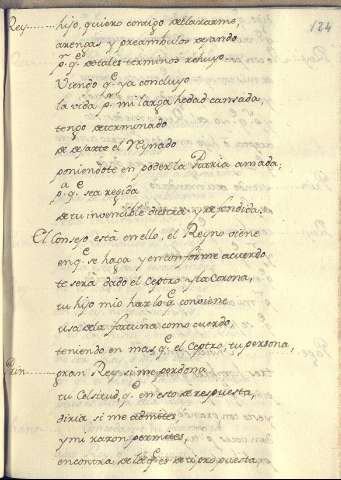 124
Rey...... hijo, quiero contigo declararme,
arengas y preambulos dejando
p.r q.e de tales terminos rehuyo
Viendo q.e ya concluyo
la vida p.r mi larga hedad cansada,
tengo determinado
de dejarte el Reynado
poniendote en poder la Patria amada;
p.a q.e sea regida
de tu invencible diestra y defendida.
El Consejo està en ello, el Reyno viene
en q.e se haga y en conforme acuerdo
te serà dado el Ceptro y la Corona,
tu hijo mio haz lo q.e conviene
usa de la fortuna como cuerdo,
teniendo en mas q.e el Ceptro, tu persona,
Prin...... gran Rey si me perdona
tu Celsitud, q.e en esto de respuesta,
diria si me admites
y mi razon permites,
en contra de lo q.e es de ti propuesta,